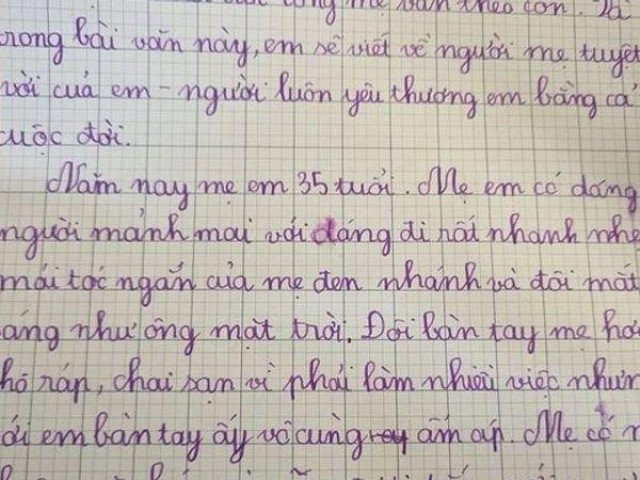 mẹ vẫn theo con. Và
rong bài văn này, em sẽ viết về người mẹ tuyệt
vời của em - người luôn yêu thương em bằng cả
cuộc đời.
Năm nay mẹ em 35 tuổi. Mẹ em có dáng
người mảnh mai với dáng đi rất nhanh nhẹ
mái tóc ngắn của mẹ đen nhánh và đôi mắt
áng như ông mặt trời. Đôi bàn tay mẹ hơi
hô ráp, chai sạn vì phải làm nhiều việc nhưn
ới em bàn tay ấy vô cùng ấm áp. Mẹ có